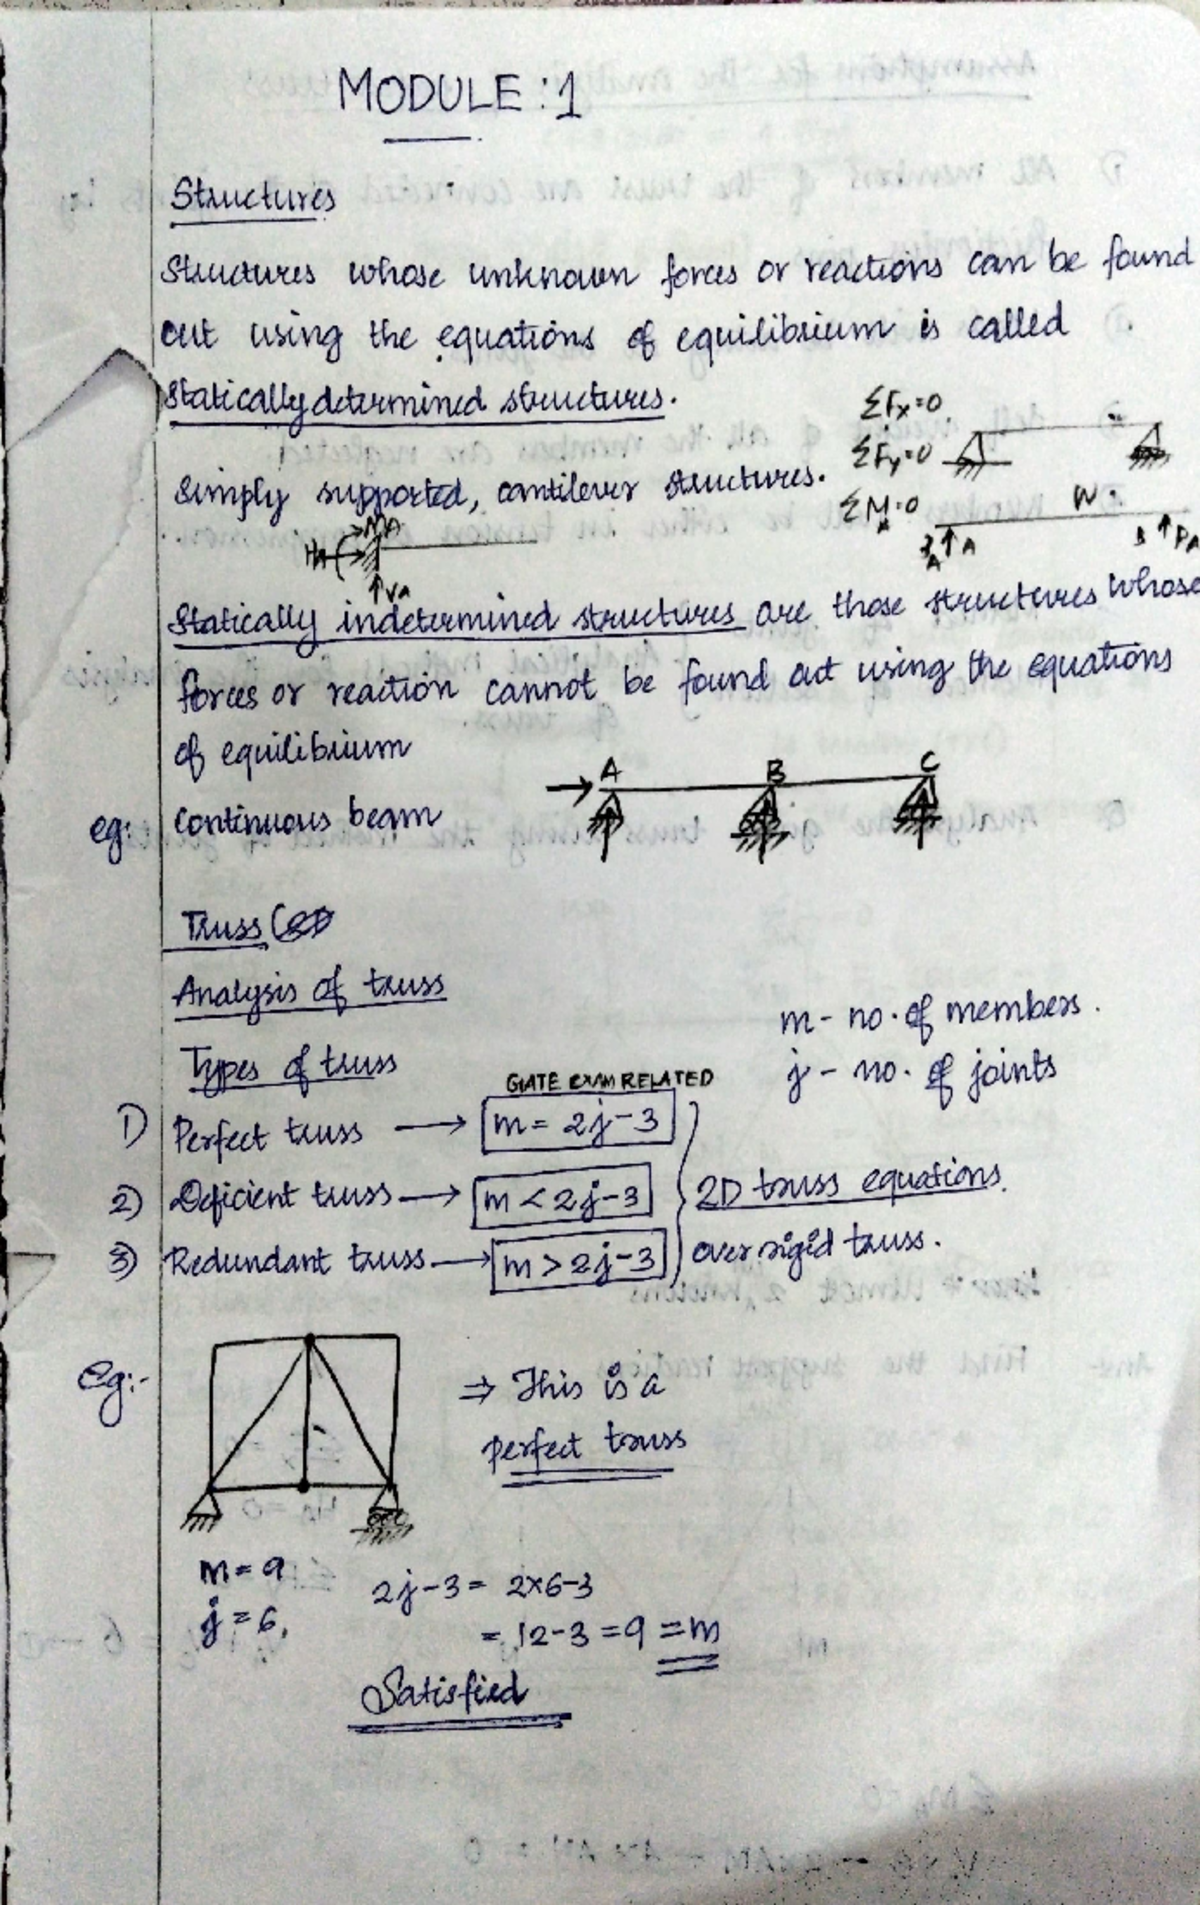 MODULE : 1
Structures
Structures whose unknown forces or reactions can be found
out using the equations of equilibrium is called
statically determined structures.
ΣFx=0
ΣFy=0
Simply supported, cantilever structures.
ΣM=0
A
W
A
B
RA
MA
HA
VA
Statically indetermined structures are those structures whose
forces or reaction cannot be found out using the equations
of equilibrium
A B C
eg: Continuous beam
Truss
Analysis of truss
m - no. of members.
Types of truss
j - no. of joints
GATE EXAM RELATED
1) Perfect truss → m = 2j-3
2) Deficient truss → m < 2j-3 2D truss equations.
3) Redundant truss → m > 2j-3 over rigid truss.
Eg:-
⇒ This is a
perfect truss
m = 9
j = 6,
2j-3 = 2×6-3
= 12-3 = 9 = m
Satisfied